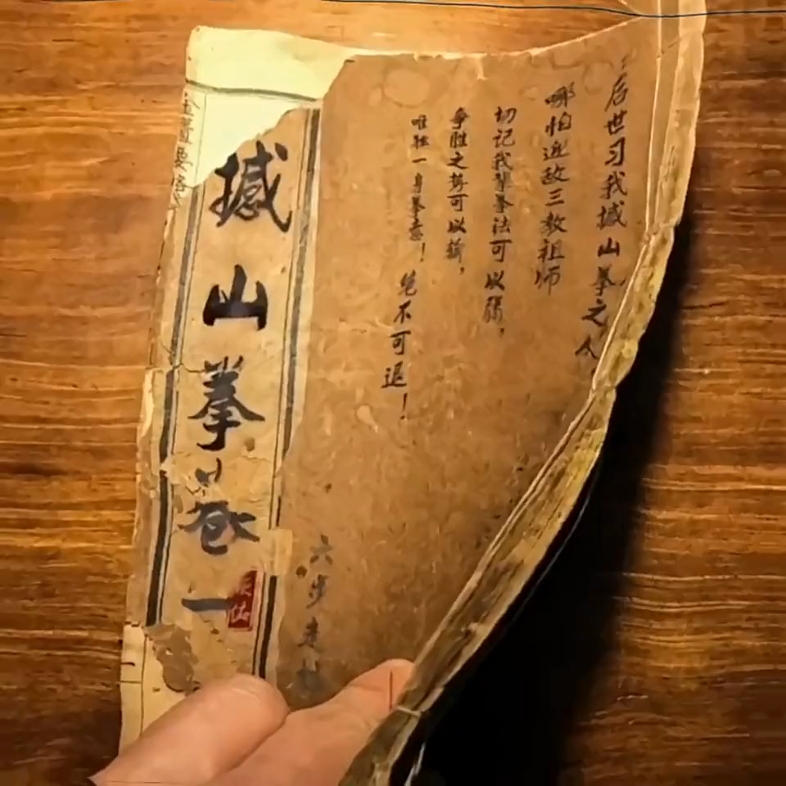 后世习我撼山拳之人
哪怕迎敌三教祖师
切记我辈拳法可以弱，
争胜之势可以输，
唯独一身拳意！绝不可退！
六步走桩
撼山拳卷一